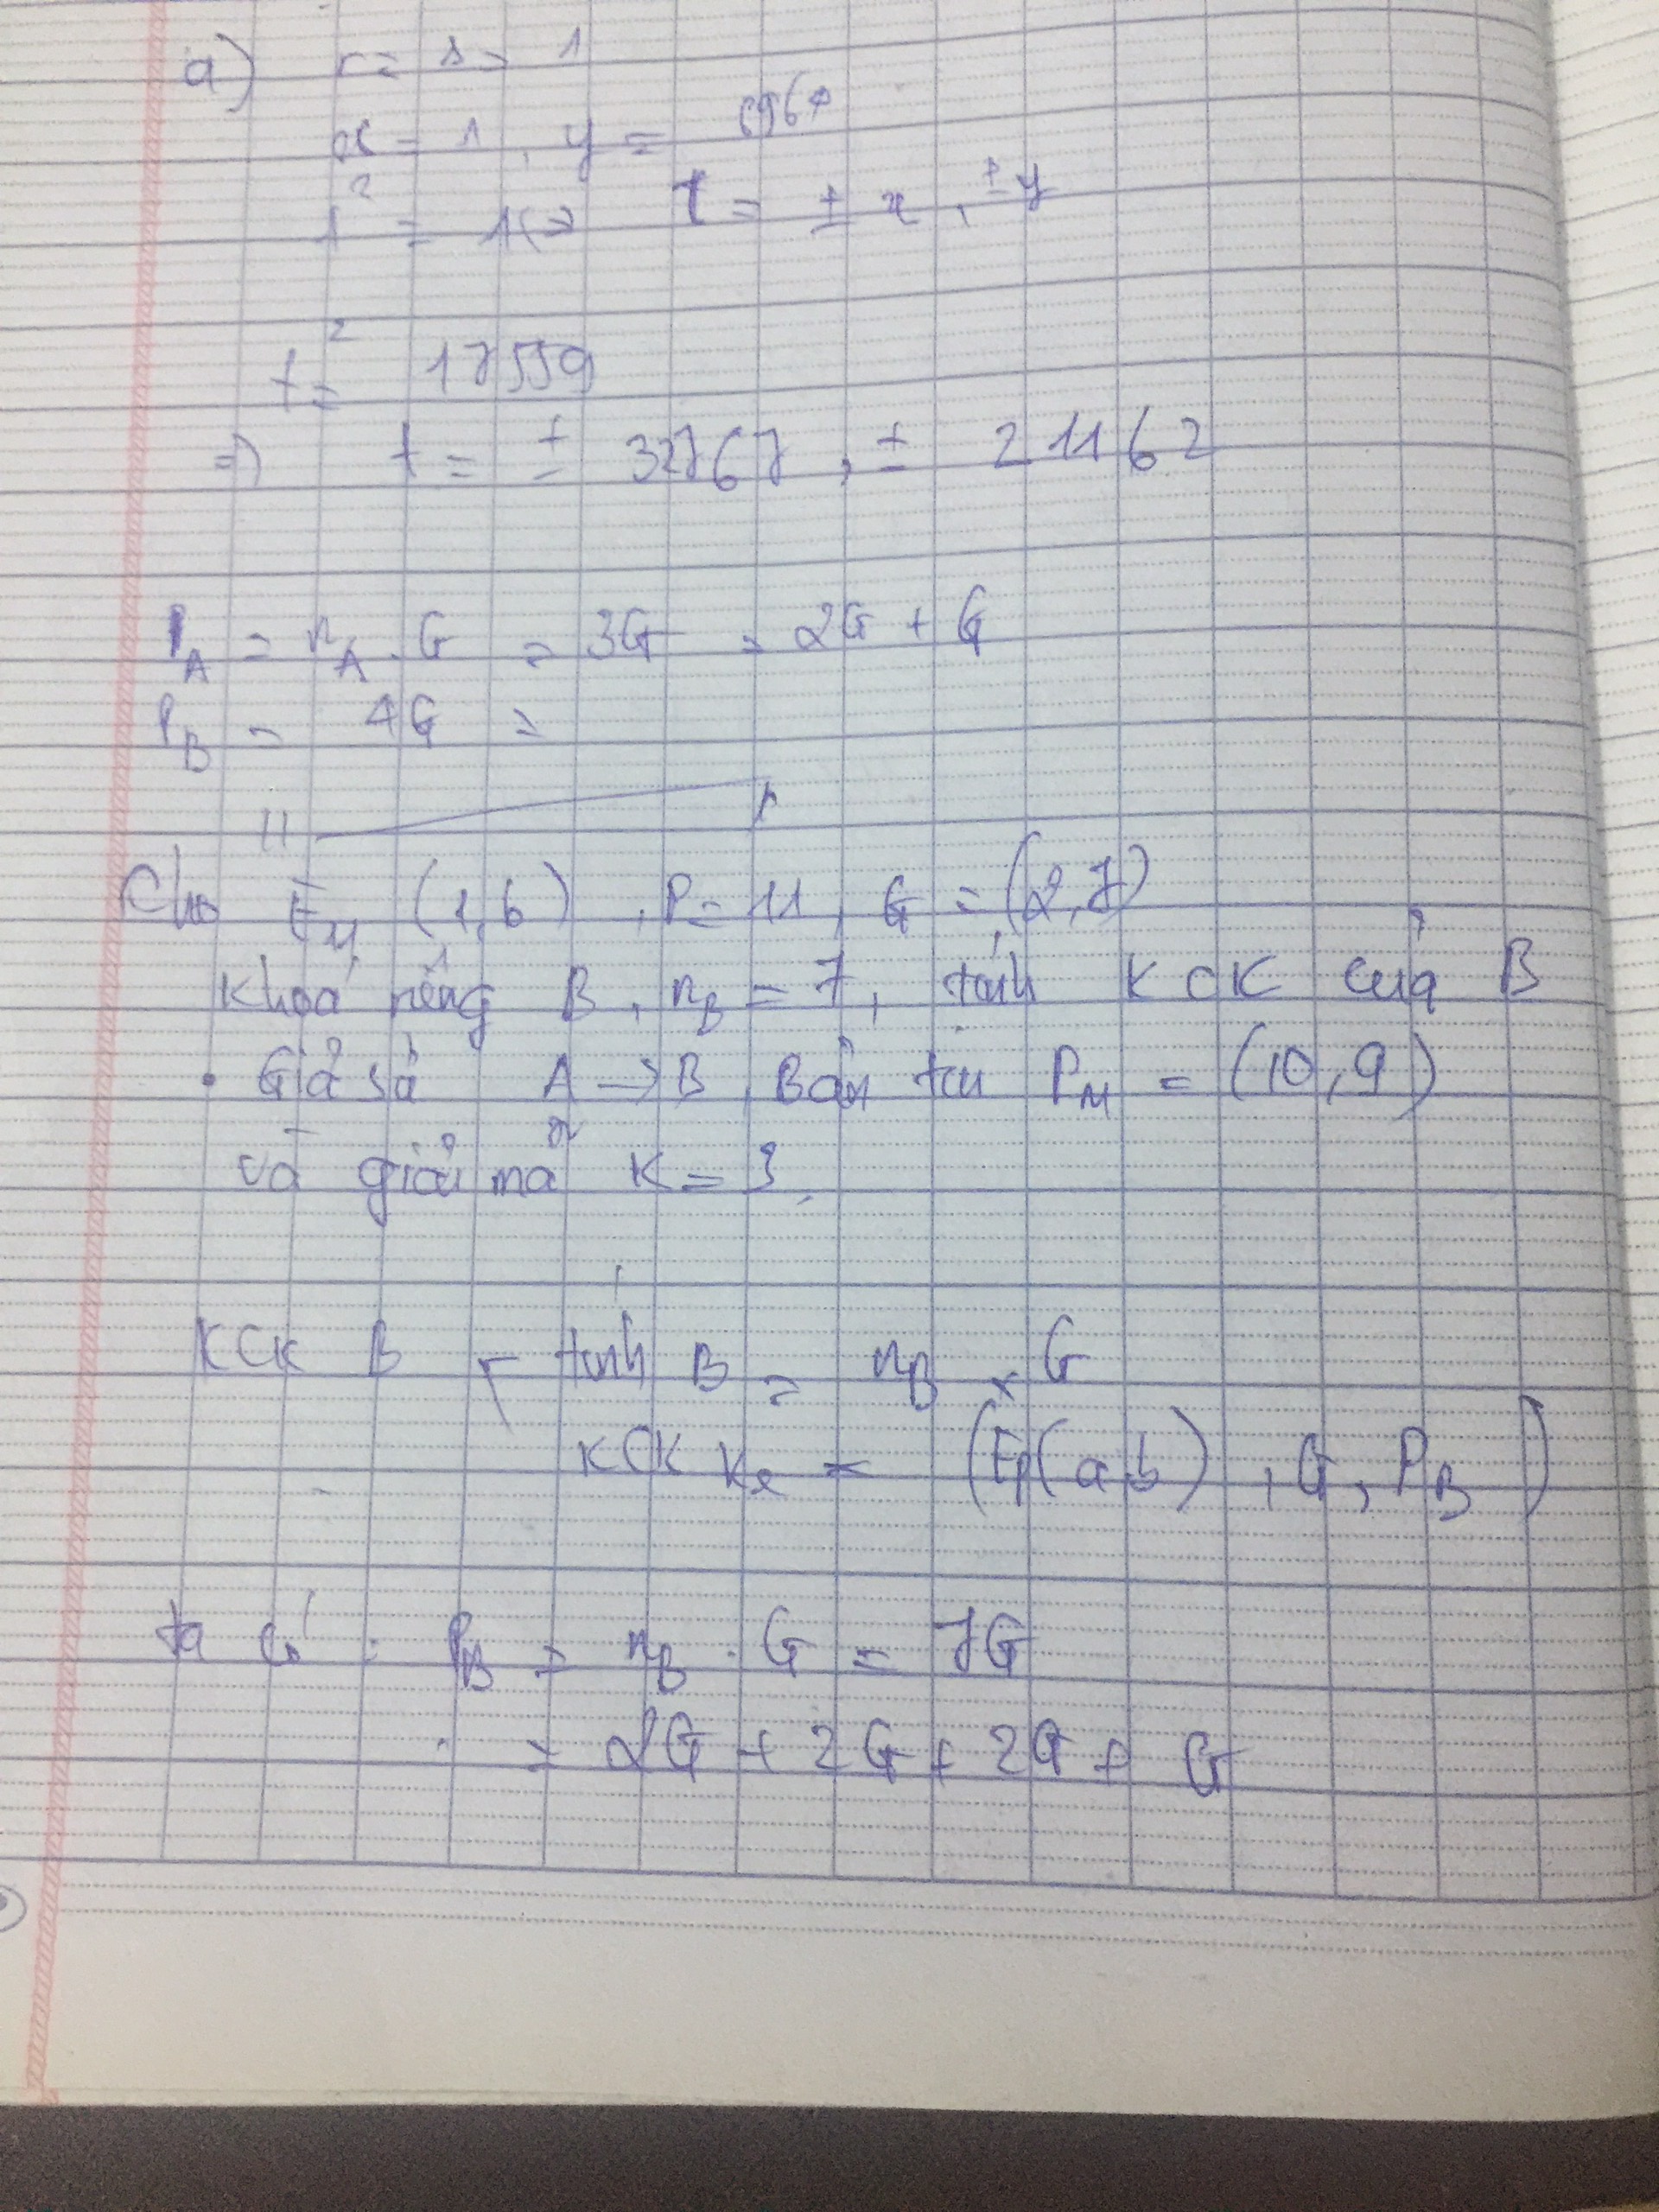 a) r = s = 1
x = 1, y =
1² = 1 <=> t = ± x, ± y
t² = 17559
=> t = ± 32767, ± 21162
P_A = n_A . G = 3G = 2G + G
P_B = 4G =
Cho E₁₁ (1,6), P = 11, G = (2,7)
Khoá riêng B, n_B = 7, tính KCK của B
• Giả sử A -> B, Bản tin P_M = (10,9)
và giải mã K = 3.
KCK B tính B = n_B × G
KCK Ke = (Ep(a,b), G, P_B)
ta có : P_B = n_B . G = 7G
= 2G + 2G + 2G + G